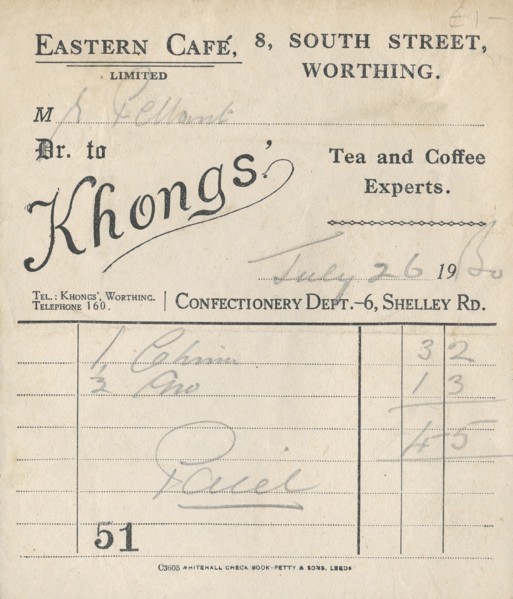 £1-
EASTERN CAFÉ, 8, SOUTH STREET,
LIMITED WORTHING.
Mr Pellant
Dr. to
Khongs'. Tea and Coffee
Experts.
July 26 1930
TEL.: KHONGS', WORTHING.
TELEPHONE 160.
CONFECTIONERY DEPT.-6, SHELLEY RD.
1 China 3 2
1 3
4 5
Paid
51
C3605 WHITEHALL CHECK BOOK-PETTY & SONS, LEEDS